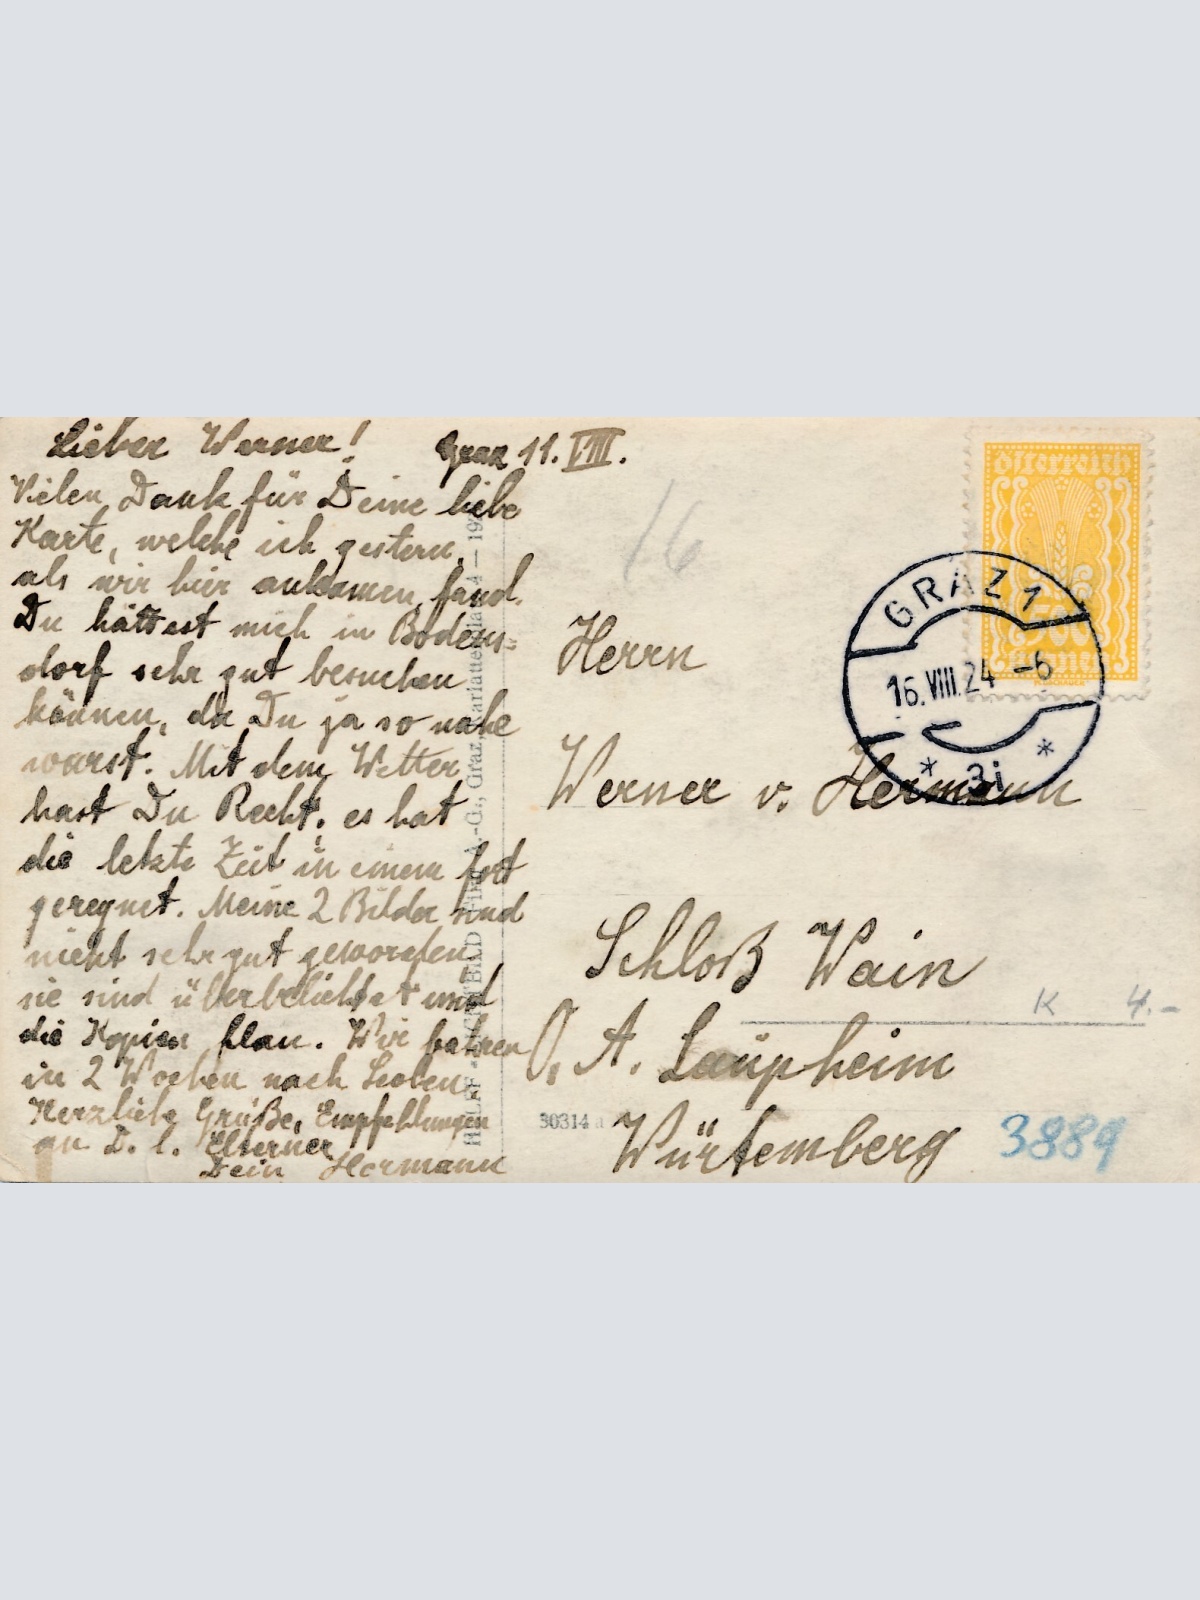 Lieber Werner!
Graz 11. VIII.
Vielen Dank für Deine liebe
Karte, welche ich gestern,
als wir hier ankamen, fand.
Du hättest mich in Bodens-
dorf sehr gut besuchen
können, da Du ja so nahe
warst. Mit dem Wetter
hast Du Recht, es hat
die letzte Zeit in einem fort
geregnet. Meine 2 Bilder sind
nicht sehr gut geworden,
sie sind überbelichtet und
die Kopien flau. Wir fahren
in 2 Wochen nach Leoben.
Herzliche Grüße, Empfehlungen
an D. l.
Dein Hermann
16
österreich
500
Kronen
GRAZ 1
16.VIII.24 -6
* 3i *
Herrn
Werner v. Hermann
Schloß Wain
K 4.-
O. A. Laupheim
30314
Würtemberg
3889
A.-G., Graz,